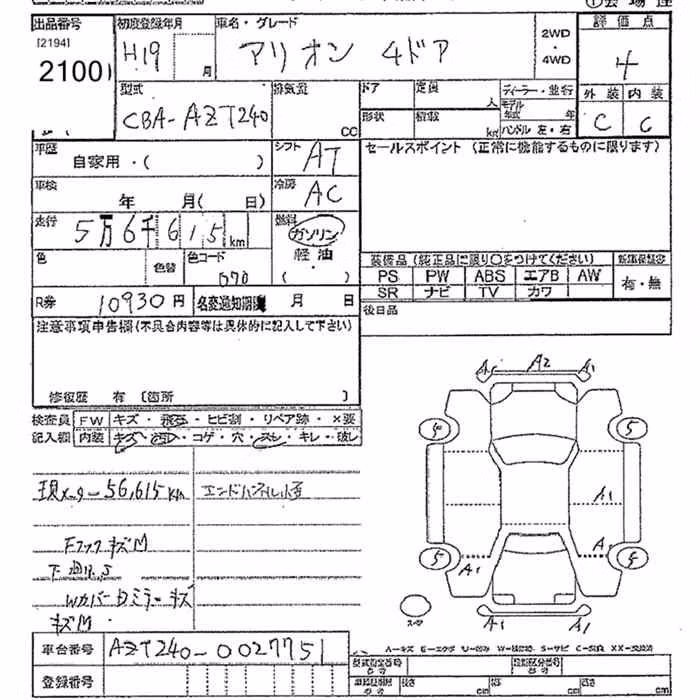 出品番号
[2194]
2100
初度登録年月
H19 月
車名・グレード
アリオン 4ドア
2WD
・
4WD
評価点
4
外装 内装
C C
型式
CBA-AZT240
排気量
CC
ドア
定員
人
形状
積載
ディーラー・並行
モデル
年式 年
ハンドル 左・右
車歴
自家用・( )
シフト
AT
車検
年 月( 日)
冷房
AC
走行
5万6千615km
燃料
ガソリン
軽油
( )
色
色替
色コード
070
R券
10930円
名変通知期限 月 日
セールスポイント (正常に機能するものに限ります)
装備品 (純正品に限り○をつけてください)
PS PW ABS エアB AW
SR ナビ TV カワ
新車保証書
有・無
後日品
注意事項申告欄(不具合内容等は具体的に記入して下さい)
修復歴 有 〔箇所 〕
検査員 FW キズ・飛石・ヒビ割・リペア跡・×要
記入欄 内装 キズ・コゲ・穴・スレ・キレ・破レ
現メーター56,615km
Fフックキズ
下廻りサビ
Wカバー ミラーキズ
A1 A2 A1
5 5
A1
A1
A1
5 5
スペア
A1 A1
A-キズ E-エクボ U-凹み W-補修跡 S-サビ C-腐食 XX-交換済
車台番号
AZT240-0027751
登録番号
型式指定番号
類別区分番号
長さ cm
幅 cm
高さ cm